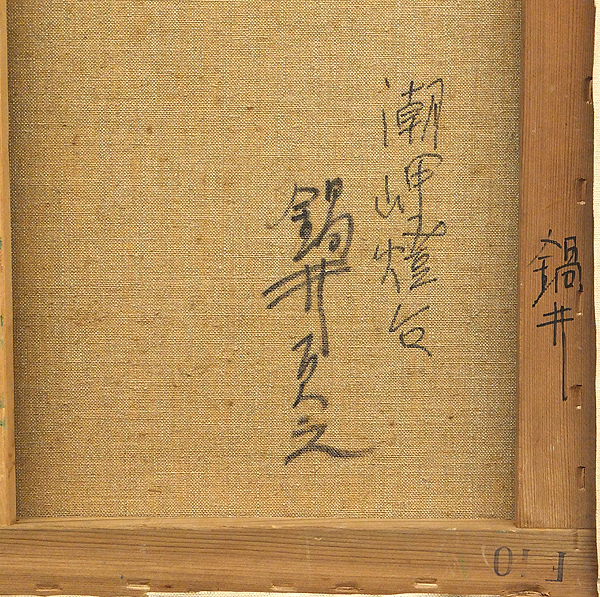 潮岬燈台
鍋井克之
鍋井
F10